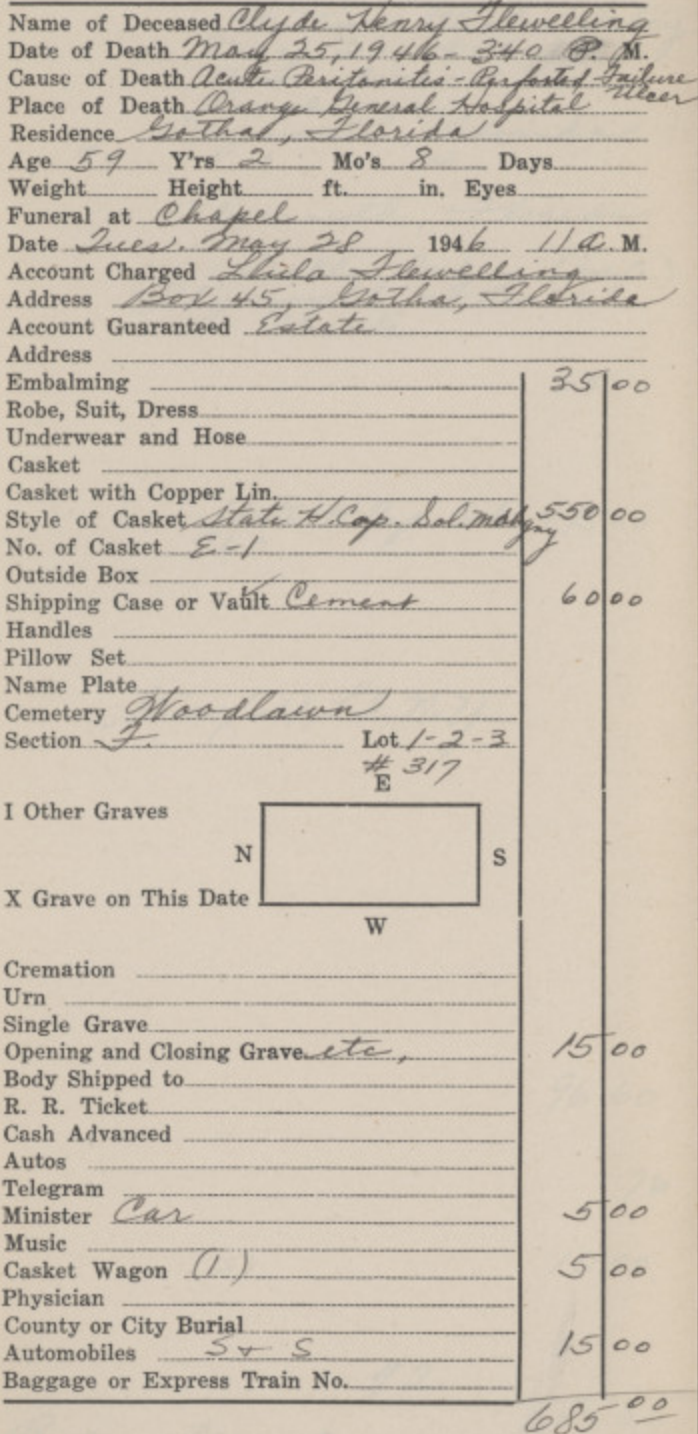 Name of Deceased Clyde Henry Flewelling
Date of Death May 25, 1946 - 340 P. M.
Cause of Death Acute Peritonitis - Perforated Failure
Ulcer
Place of Death Orange General Hospital
Residence Gotha, Florida
Age 59 Y'rs 2 Mo's 8 Days
Weight Height ft. in. Eyes
Funeral at Chapel
Date Tues. May 28 1946 11 a. M.
Account Charged Flewelling
Address Box 45, Gotha, Florida
Account Guaranteed Estate
Address
Embalming 35 00
Robe, Suit, Dress
Underwear and Hose
Casket
Casket with Copper Lin.
Style of Casket State H. Cap. Sol. Mahgny 550 00
No. of Casket E-1
Outside Box
Shipping Case or Vault Cement 60 00
Handles
Pillow Set
Name Plate
Cemetery Woodlawn
Section F. Lot 1-2-3
# 317
E
I Other Graves
N S
X Grave on This Date
W
Cremation
Urn
Single Grave
Opening and Closing Grave etc, 15 00
Body Shipped to
R. R. Ticket
Cash Advanced
Autos
Telegram
Minister Car 5 00
Music
Casket Wagon (1) 5 00
Physician
County or City Burial
Automobiles S & S 15 00
Baggage or Express Train No.
685 00